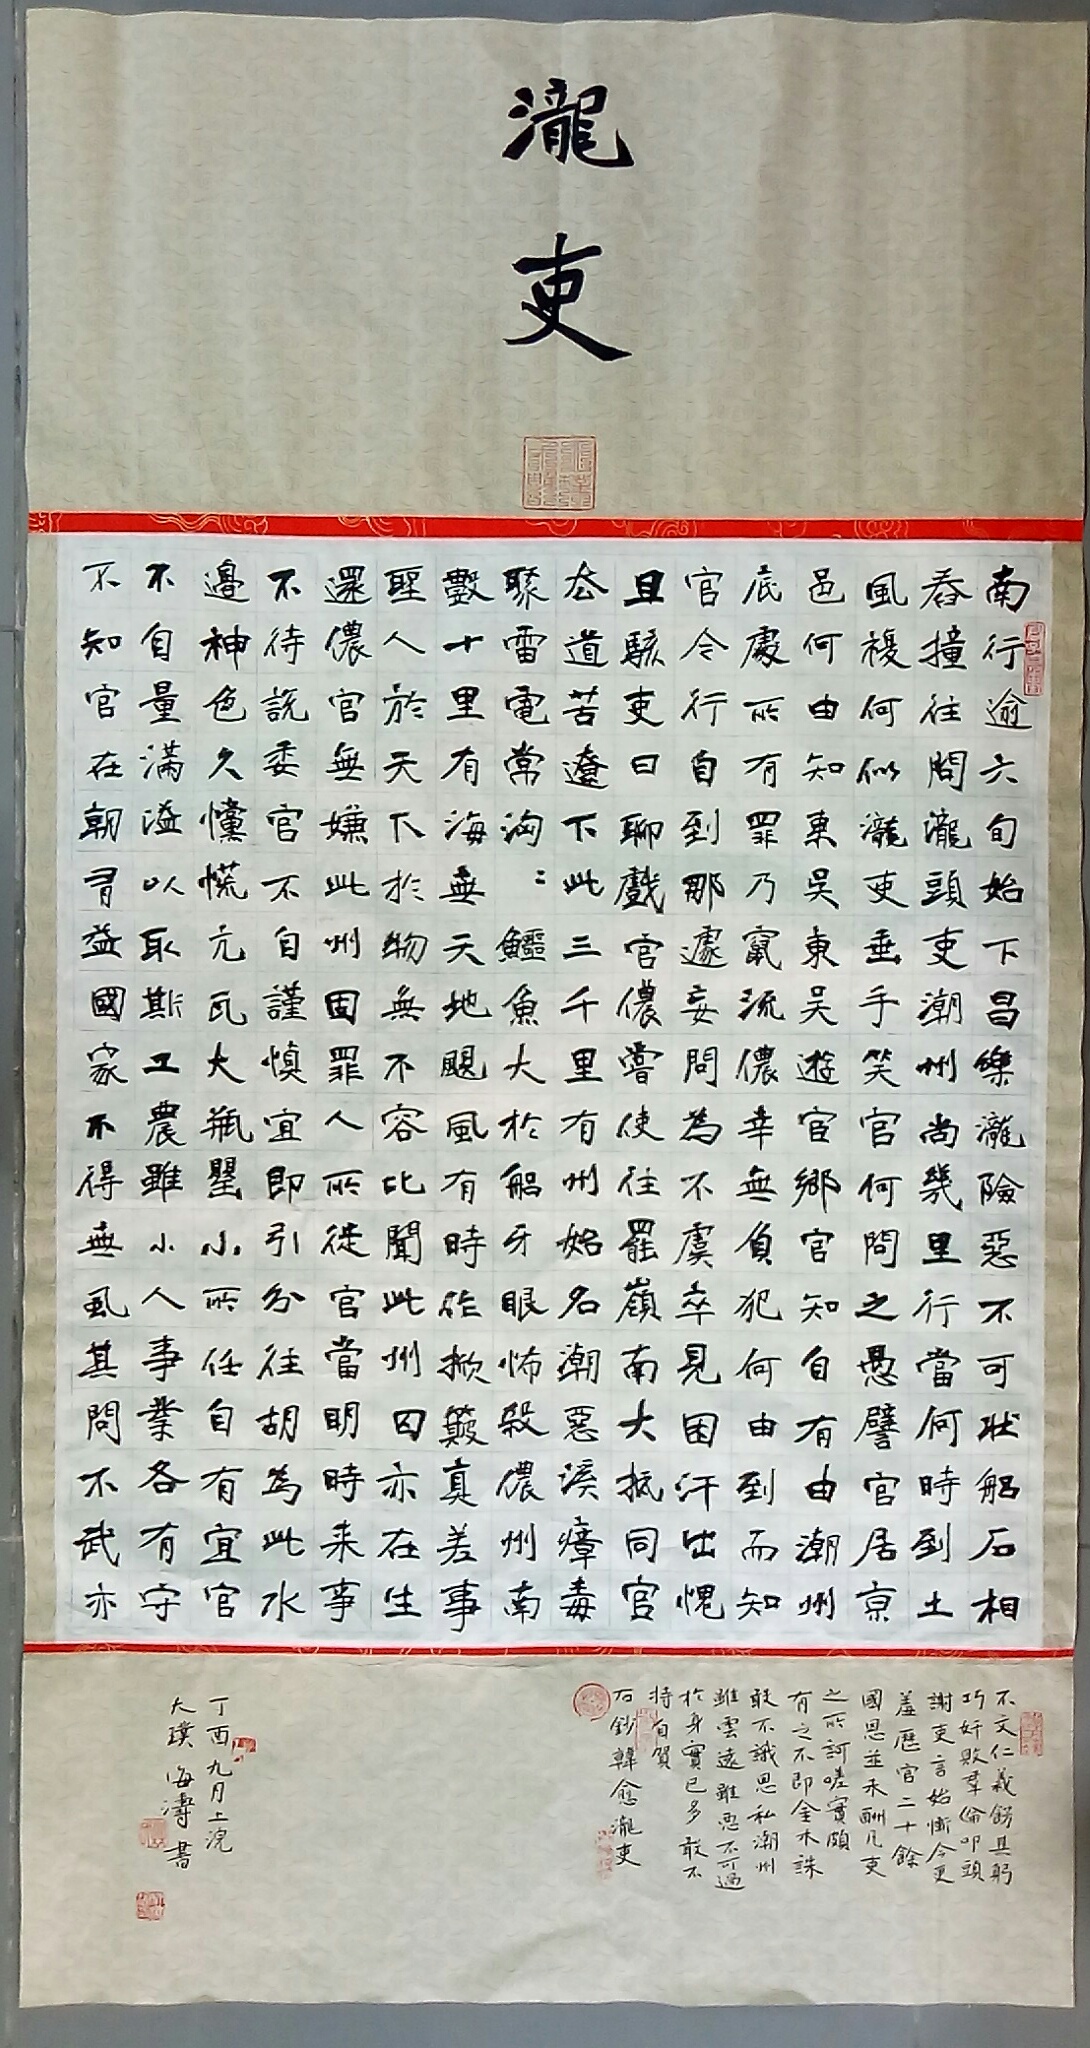 瀧吏
南行逾六旬始下昌樂瀧險惡不可狀船石相
舂撞往問瀧頭吏潮州尚幾里行當何時到土
風複何似瀧吏垂手笑官何問之愚譬官居京
邑何由知東吳東吳遊宦鄉官知自有由潮州
底處所有罪乃竄流儂幸無負犯何由到而知
官今行自到那遽妄問為不虞卒見困汗出愧
且駭吏曰聊戲官儂嘗使往罷嶺南大抵同官
去道苦遼下此三千里有州始名潮惡溪瘴毒
聚雷電常洶〻鱷魚大於船牙眼怖殺儂州南
數十里有海無天地颶風有時作掀簸真差事
聖人於天下於物無不容比聞此州囚亦在生
還儂官無嫌此州固罪人所徙官當明時来事
不待說委官不自謹慎宜即引分往胡為此水
邊神色久戃慌亢瓦大瓶罌小所任自有宜官
不自量滿溢以取斯工農雖小人事業各有守
不知官在朝有益國家不得無虱其問不武亦
不文仁義飭其躬
巧奸敗羣倫叩頭
謝吏言始慚今更
羞歷官二十餘
國恩並未酬凡吏
之所訶嗟實頗
有之不即金木誅
敢不識恩私潮州
雖雲遠雖惡不可過
於身實已多敢不
持自賀
右鈔韓愈瀧吏
丁酉九月上浣
大璞海濤書